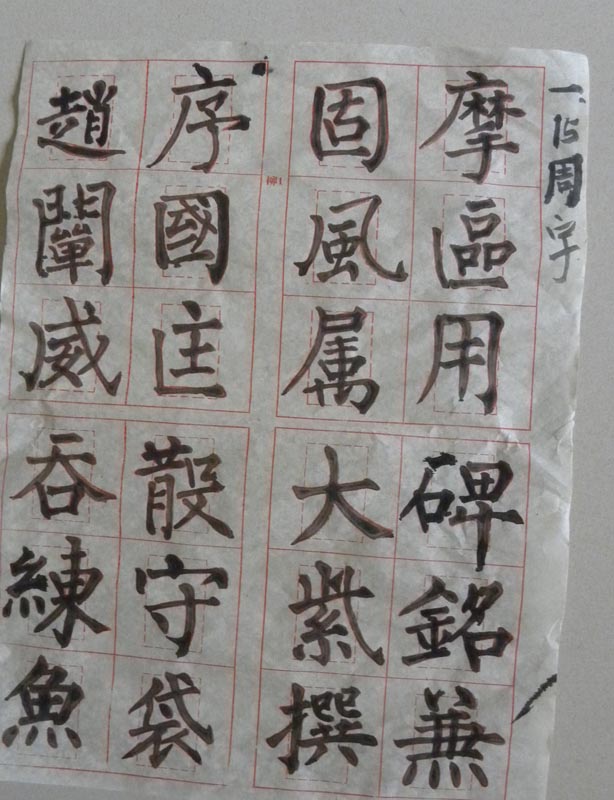 一、15周字
摩區用
固風属
柳1
序國匡
趙闡威
碑銘兼
大紫撰
散守袋
吞練魚